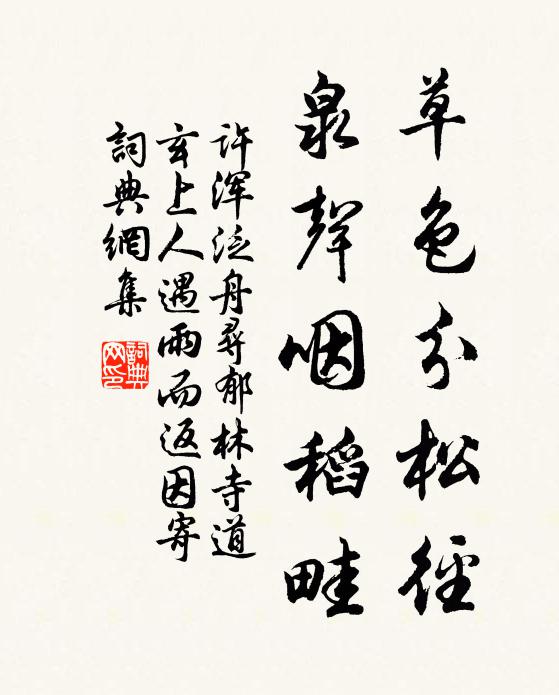 草色分松徑
泉聲咽稻畦
許渾泛舟尋郁林寺道
玄上人遇雨而返因寄
詞典網集
詞典網印